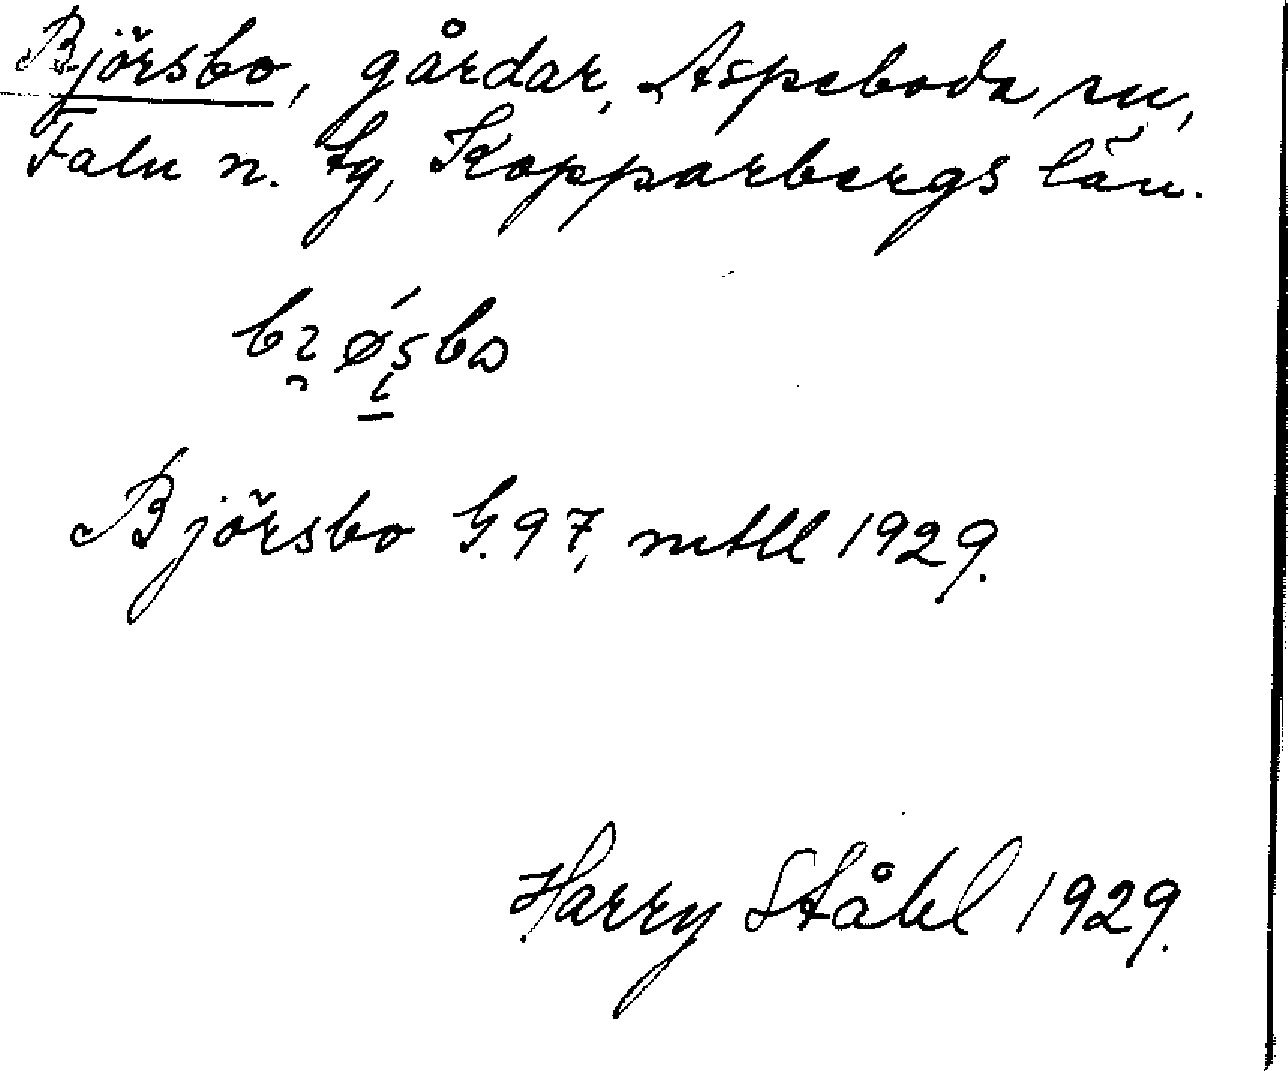 Björsbo, gårdar, Aspeboda sn,
Falu n. tg, Kopparbergs län.
Björsbo G.97, mtll 1929.
Harry Ståhl 1929.